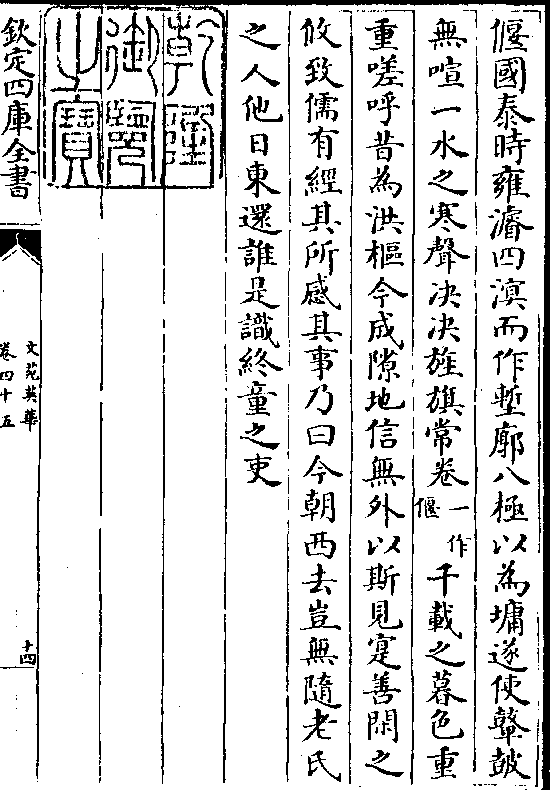 偃國泰時雍濬四溟而作塹廓八極以為墉遂使鼛鼓
無喧一水之寒聲决决旌旗常卷一作偃千載之暮色重
重嗟呼昔為洪樞今成隙地信無外以斯見寔善閉之
攸致儒有經其所感其事乃曰今朝西去豈無隨老氏
之人他日東還誰是識終童之吏
乾隆御覽之寶
欽定四庫全書
文苑英華
卷四十五
十四